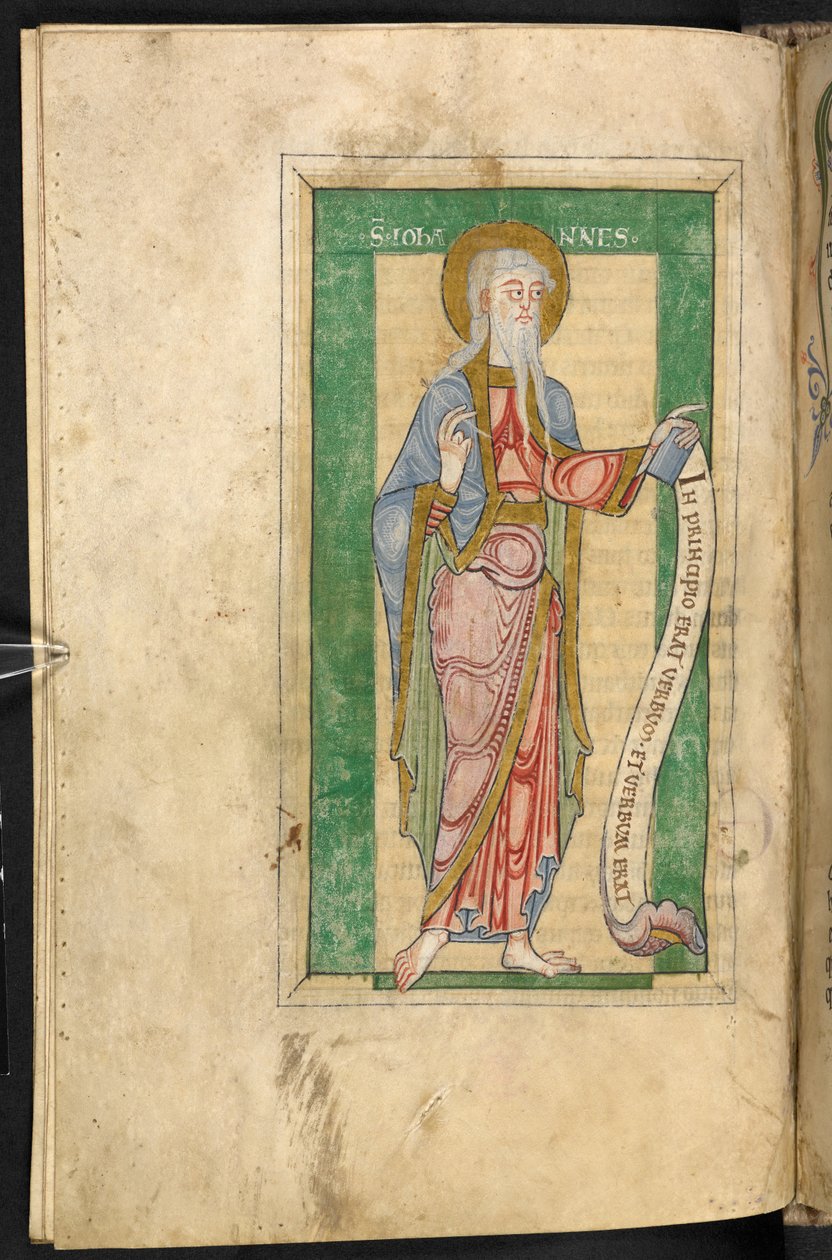 ·S̄·IOhANNES·
IN PRINCIPIO ERAT VERBVM· ET VERBVM ERAT